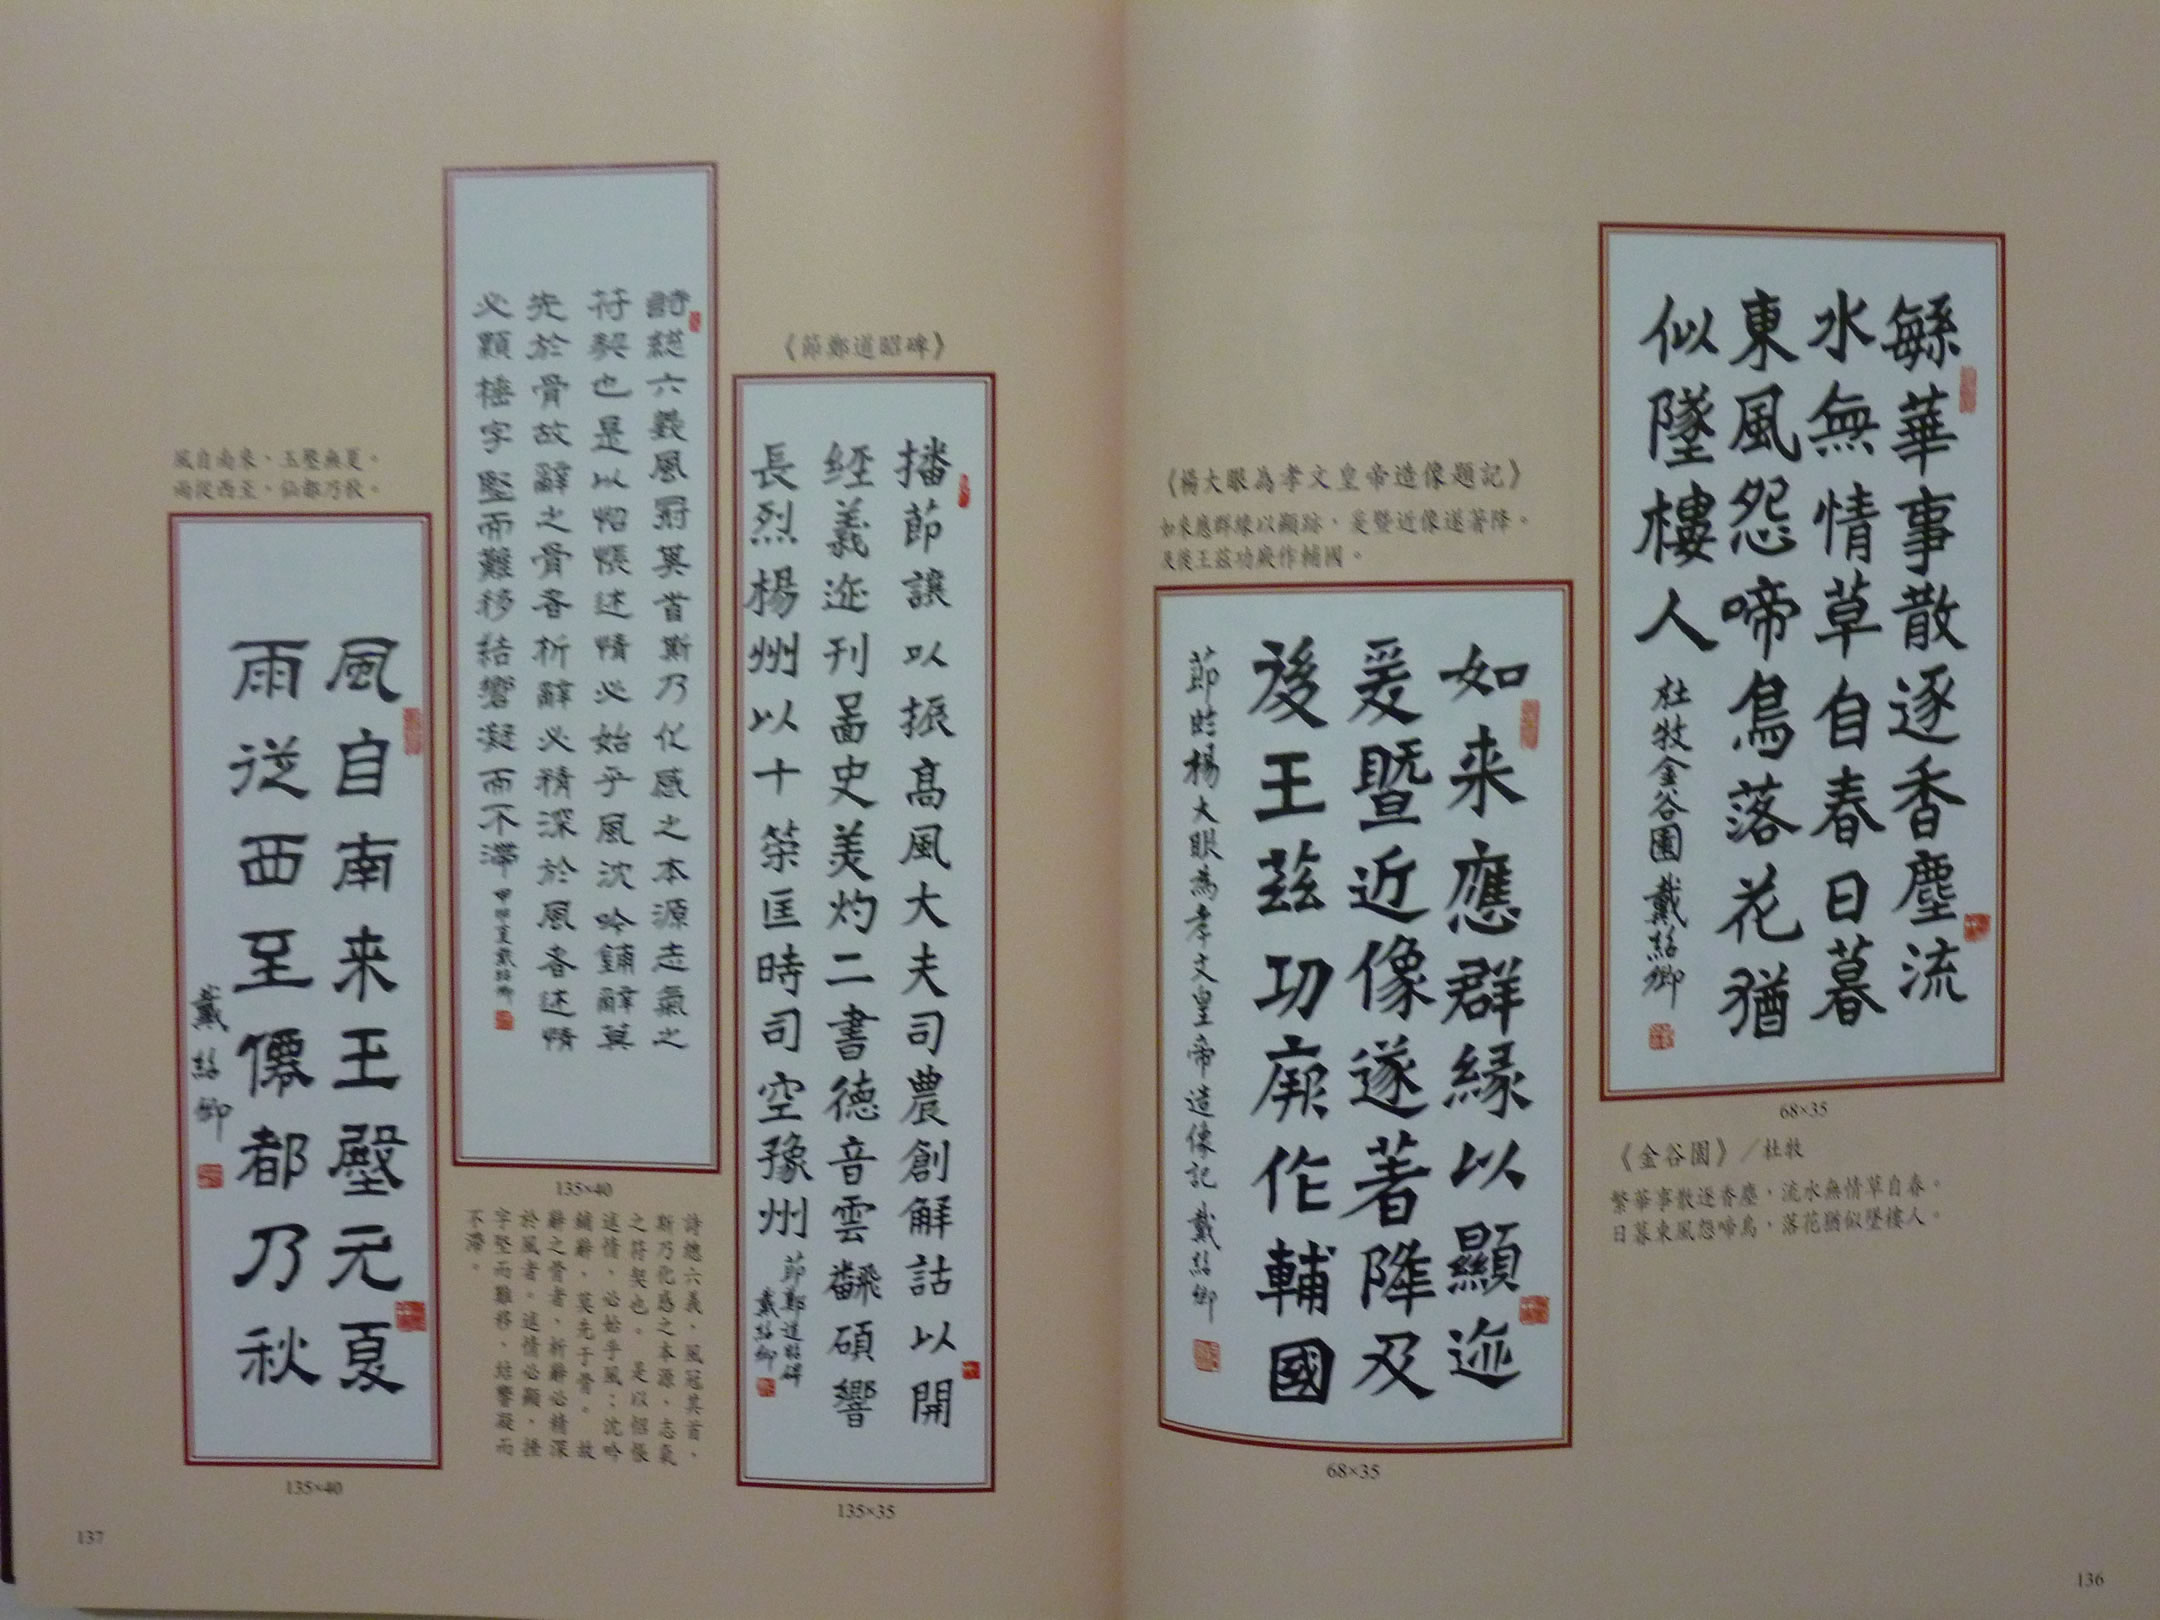 繁華事散逐香塵流
水無情草自春日暮
東風怨啼鳥落花猶
似墜樓人
杜牧金谷園 戴紹卿
68×35
《金谷園》/杜牧
繁華事散逐香塵，流水無情草自春。
日暮東風怨啼鳥，落花猶似墜樓人。
《楊大眼為孝文皇帝造像題記》
如來應群緣以顯跡，爰暨近像遂著降。
及後王茲功厥作輔國。
如来應群緣以顯迹
爰暨近像遂著降及
後王茲功厥作輔國
節臨楊大眼為孝文皇帝造像記 戴紹卿
68×35
136
《節鄭道昭碑》
播節讓以振高風大夫司農創解詁以開
經義迹刊圖史美灼二書德音雲翻碩響
長烈楊州以十策匡時司空豫州
節鄭道昭碑
戴紹卿
135×35
詩緫六義風冠其首斯乃化感之本源志氣之
符契也是以怊悵述情必始乎風沈吟鋪辭莫
先於骨故辭之骨者析辭必精深於風者述情
必顯捶字堅而難移結響凝而不滯
戴紹卿
135×40
詩總六義，風冠其首，
斯乃化感之本源，志氣
之符契也。是以怊悵
述情，必始乎風；沈吟
鋪辭，莫先于骨。故
辭之骨者，析辭必精深
於風者。述情必顯，捶
字堅而難移、結響凝而
不滯。
風自南來、玉墼無夏。
雨從西至、仙都乃秋。
風自南来玉墼无夏
雨從西至僊都乃秋
戴紹卿
135×40
137